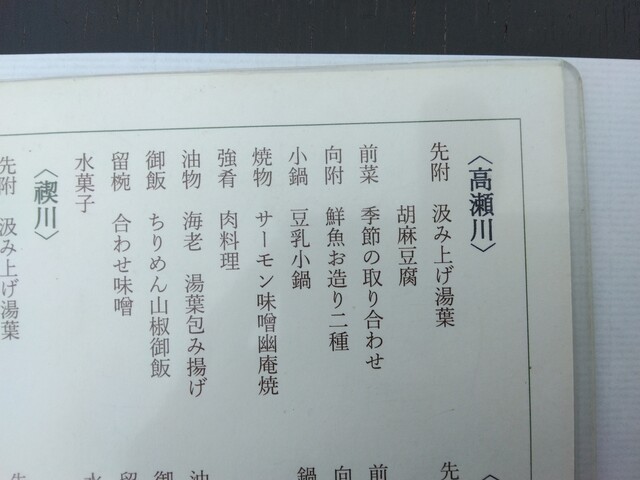 〈高瀬川〉
先附 汲み上げ湯葉
胡麻豆腐
前菜 季節の取り合わせ
向附 鮮魚お造り二種
小鍋 豆乳小鍋
焼物 サーモン味噌幽庵焼
強肴 肉料理
油物 海老 湯葉包み揚げ
御飯 ちりめん山椒御飯
留椀 合わせ味噌
水菓子
〈禊川〉
先附 汲み上げ湯葉
〈
先
前
向
鍋
油
御
留
水
先